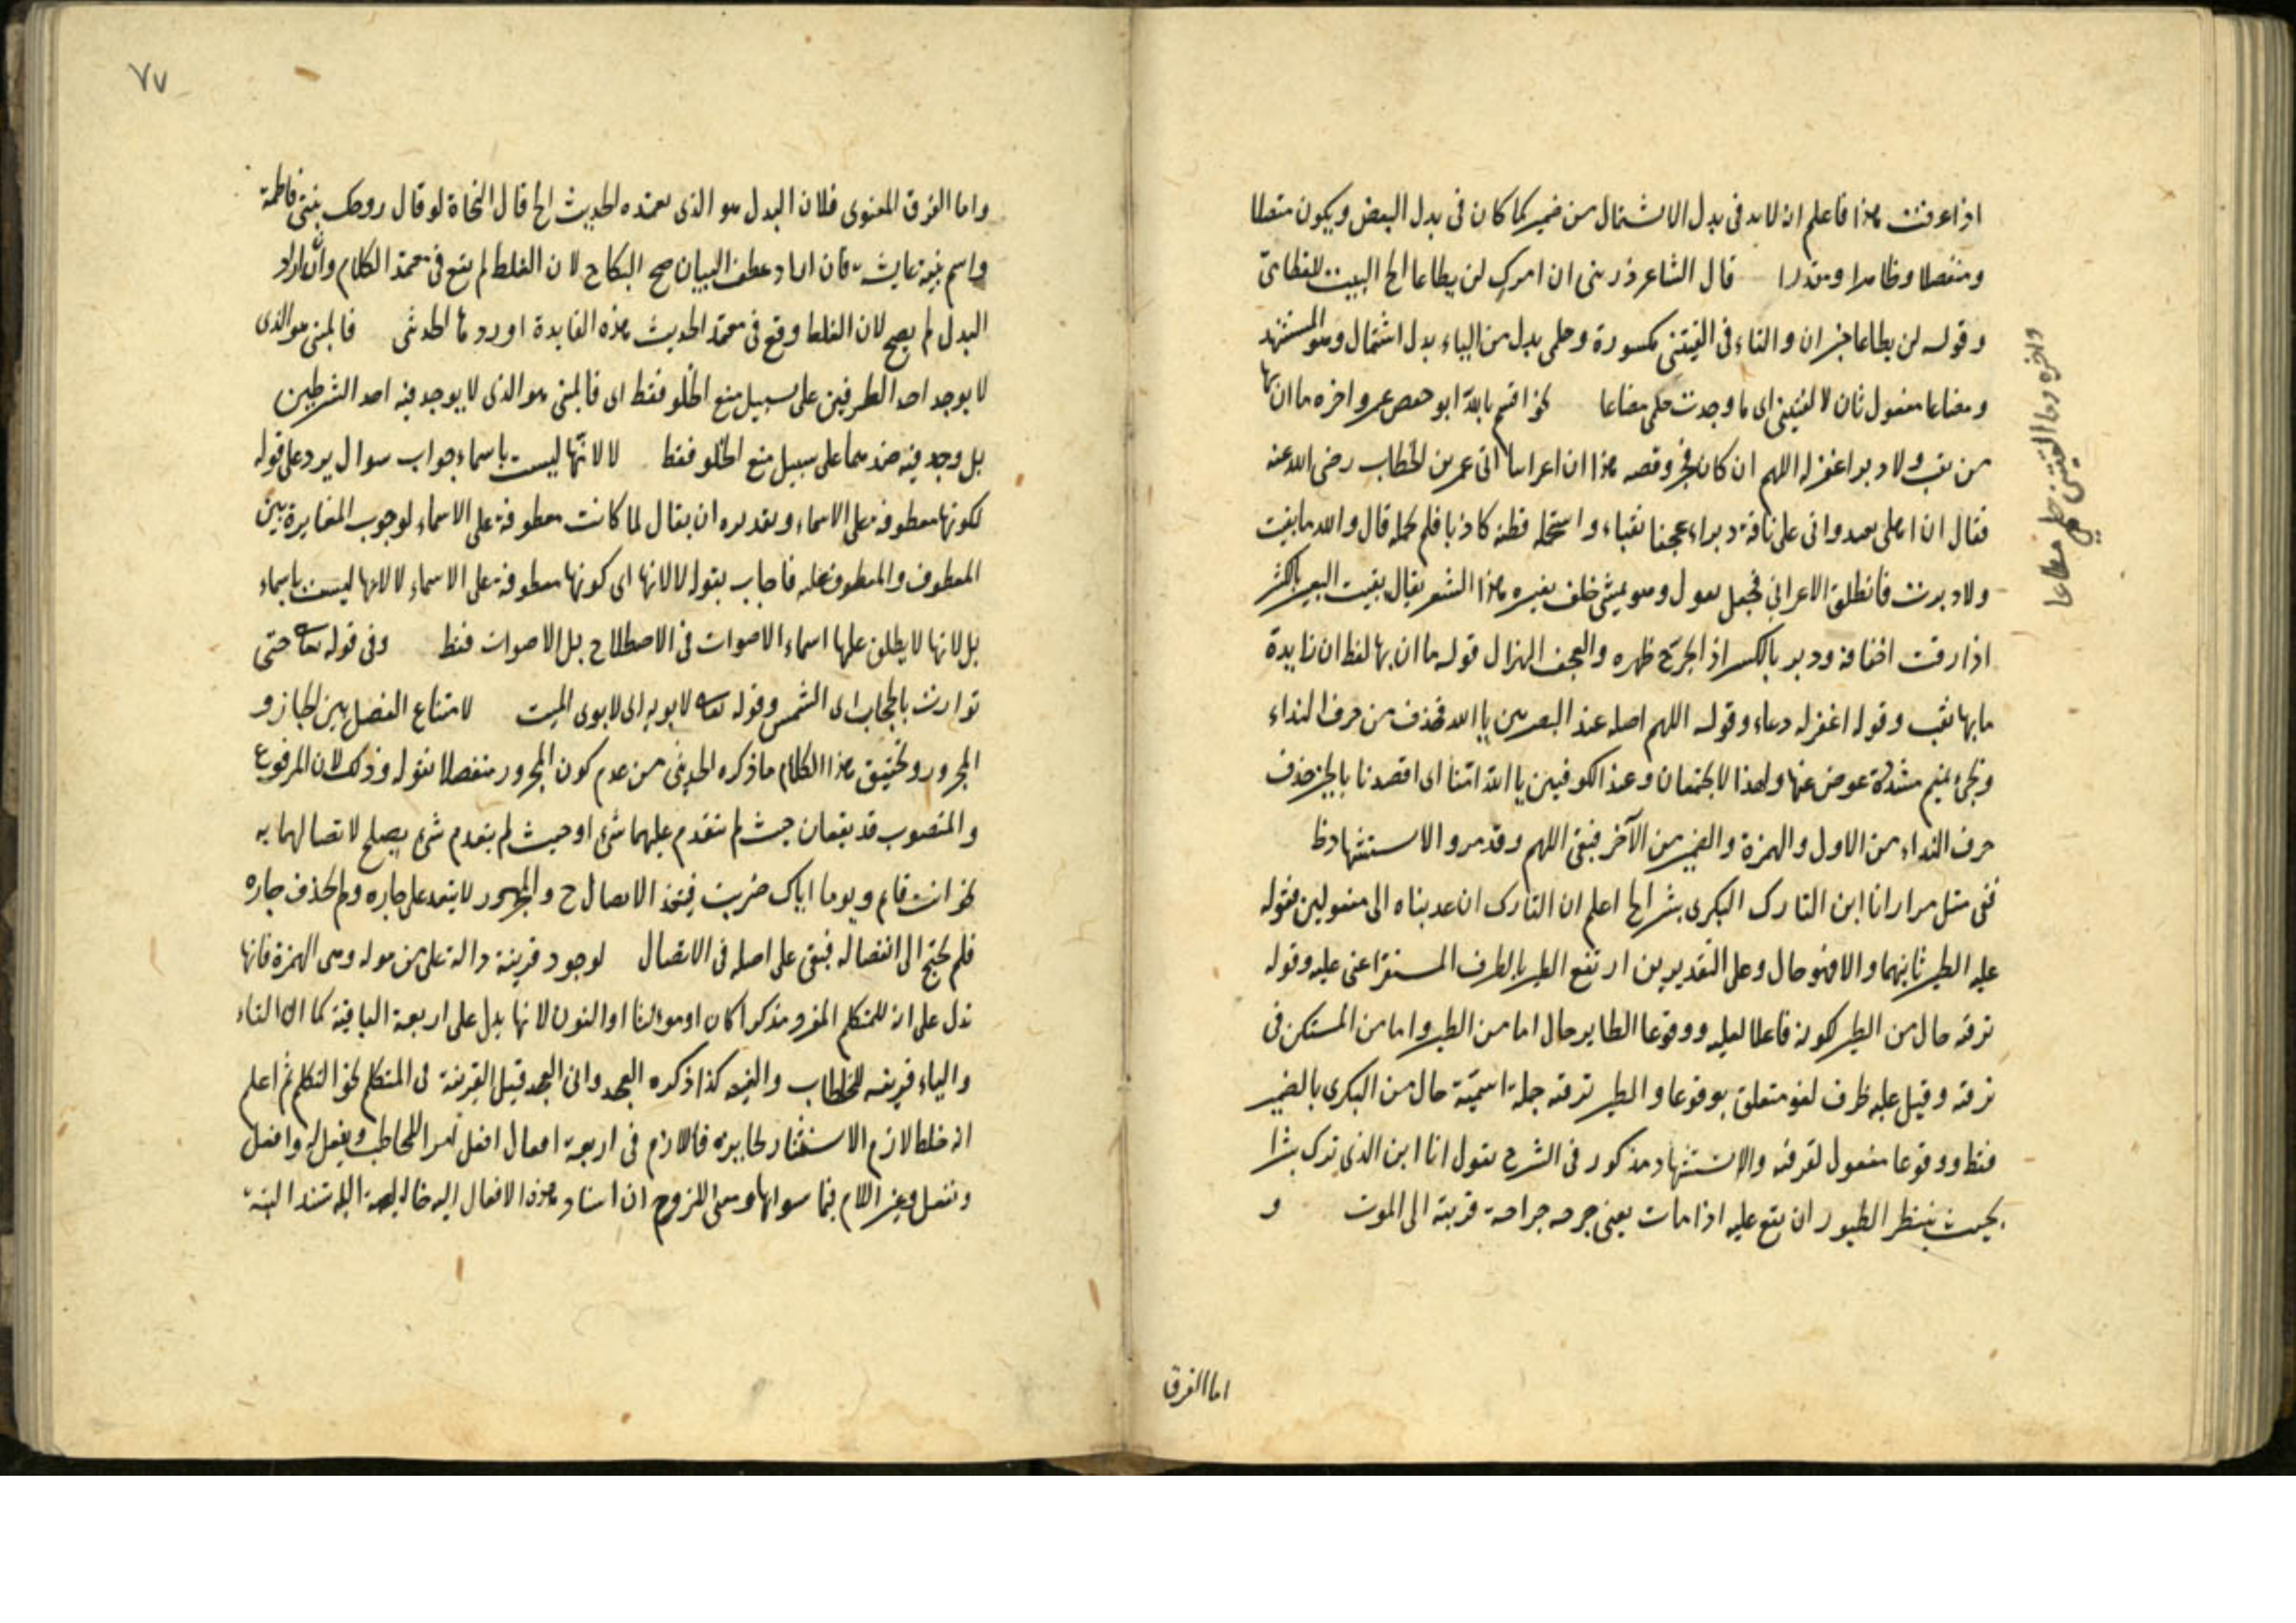 اذا عرفت هذا فاعلم ان لابد فى بدل الاشتمال من ضمير كما كان فى بدل البعض ويكون متصلا
ومنفصلا وظاهرا ومقدرا قال الشاعر ذرينى ان امرك لن يطاعا الخ البيت للقطامى
وقوله لن يطاعا خبر ان والتاء فى الفيتنى مكسورة وحلمى بدل من الياء بدل اشتمال وهو المستشهد
ومضاعا مفعول ثان لالفيتنى اى ما وجدت حلمى مضاعا نحو اقسم بالله ابو حفص عمر واخره ما ان بها
من نقب ولا دبر اغفر له اللهم ان كان فجر وقصه هذا ان اعرابيا اتى عمر بن الخطاب رضى الله عنه
فقال ان اهلى بعيد وانى على ناقة دبراء عجفا نقباء واستحمله فظنه كاذبا فلم يحمله قال والله ما نقبت
ولا دبرت فانطلق الاعرابي فجعل يقول وهو يمشى خلف بعيره هذا الشعر يقال نقبت البعير بالكسر
اذا رقت اخفافه ودبر بالكسر اذا جرح ظهره والعجف الهزال قوله ما ان بها لفظ ان زايدة
ما بها نقب وقوله اغفر له دعاء وقوله اللهم اصله عند البصريين يا الله فحذف من حرف النداء
وبجئ بميم مشددة عوض عنها ولهذا لا يجتمعان وعند الكوفيين يا الله امنا اى اقصدنا بالخير حذف
حرف النداء من الاول والهمزة والضمير من الآخر فبقى اللهم وقد مر والاستشهاد ظ
ففى مثل مرارانا ابن التارك البكرى بشر الخ اعلم ان التارك ان عديناه الى مفعولين فقوله
عليه الطير ثانيهما والا فهو حال وعلى التقديرين ارتفع الطير بالظرف المستقر اعنى عليه وقوله
ترقبه حال من الطير لكونه فاعلا لعليه ووقوعا الطاير حال اما من الطير واما من المستكن فى
ترقبه وقيل عليه ظرف لغو متعلق بوقوعا والطير ترقبه جملة اسمية حال من البكرى بالضمير
فقط ووقوعا مفعول لترقبه والاستشهاد مذكور فى الشرح يقول انا ابن الذى ترك بشرا
بحيث ينتظر الطيور ان يقع عليه اذا مات يعنى جرحه جراحة قريبة الى الموت و
واخره وما الفيتنى حلمى مضاعا
اما الفرق
٧٧
واما الفرق المعنوى فلان البدل هو الذى يعتمده الحديث الخ قال النحاة لو قال زوجتك بنتى فاطمة
واسم بنته عايشة فان اراد عطف البيان صح النكاح لان الغلط لم يقع فى معتمد الكلام وان اراد
البدل لم يصح لان الغلط وقع فى معتمد الحديث هذه الفايدة اوردها الحديثى فالمبنى هو الذى
لا يوجد احد الطرفين على سبيل منع الخلو فقط اى فالمبنى هو الذى لا يوجد فيه احد الشرطين
بل وجد فيه ضدهما على سبيل منع الخلو فقط لا لانها ليست باسماء جواب سوال يرد على قوله
لكونها معطوفة على الاسماء وتقديره ان يقال لما كانت معطوفة على الاسماء لوجوب المغايرة بين
المعطوف والمعطوف عليه فاجاب بقوله لا لانها اى كونها معطوفة على الاسماء لا لانها ليست باسماء
بل لانها لا يطلق عليها اسماء الاصوات فى الاصطلاح بل الاصوات فقط وفى قوله تعالى حتى
توارت بالحجاب اى الشمس وقوله تعالى لابويه اى لابوى الميت لامتناع الفصل بين الجار و
المجرور وتحقيق هذا الكلام ما ذكره الحديثى من عدم كون المجرور منفصلا بقوله وذلك لان المرفوع
والمنصوب قد يقعان حيث لم يتقدم عليهما شئ او حيث لم يتقدم شئ يصلح لاتصالهما به
نحو انت قايم ويوما اياك ضربت فيتعذر الاتصال ح والمجرور لا يتقدم على جاره ولم يحذف جاره
فلم يحتج الى انفصاله فبقى على اصله فى الاتصال لوجود قرينة دالة على من هو له وهى الهمزة فانها
تدل على انه للمتكلم المفرد مذكرا كان او مونثا او النون لانها يدل على اربعة الباقية كما ان التاء
والياء قرينة للخطاب والغيبة كذا ذكره وان قيل القرينة فى المتكلم نحو التكلم ثم اعلم
انه خلط لازم الاستتار بجايزه فاللازم فى اربعة افعال افعل امر اللمخاطب وتفعل له وافعل
ونفعل وغير اللازم فيما سواها ومعنى اللزوم ان اسناد هذه الافعال اليه خاصة البتة